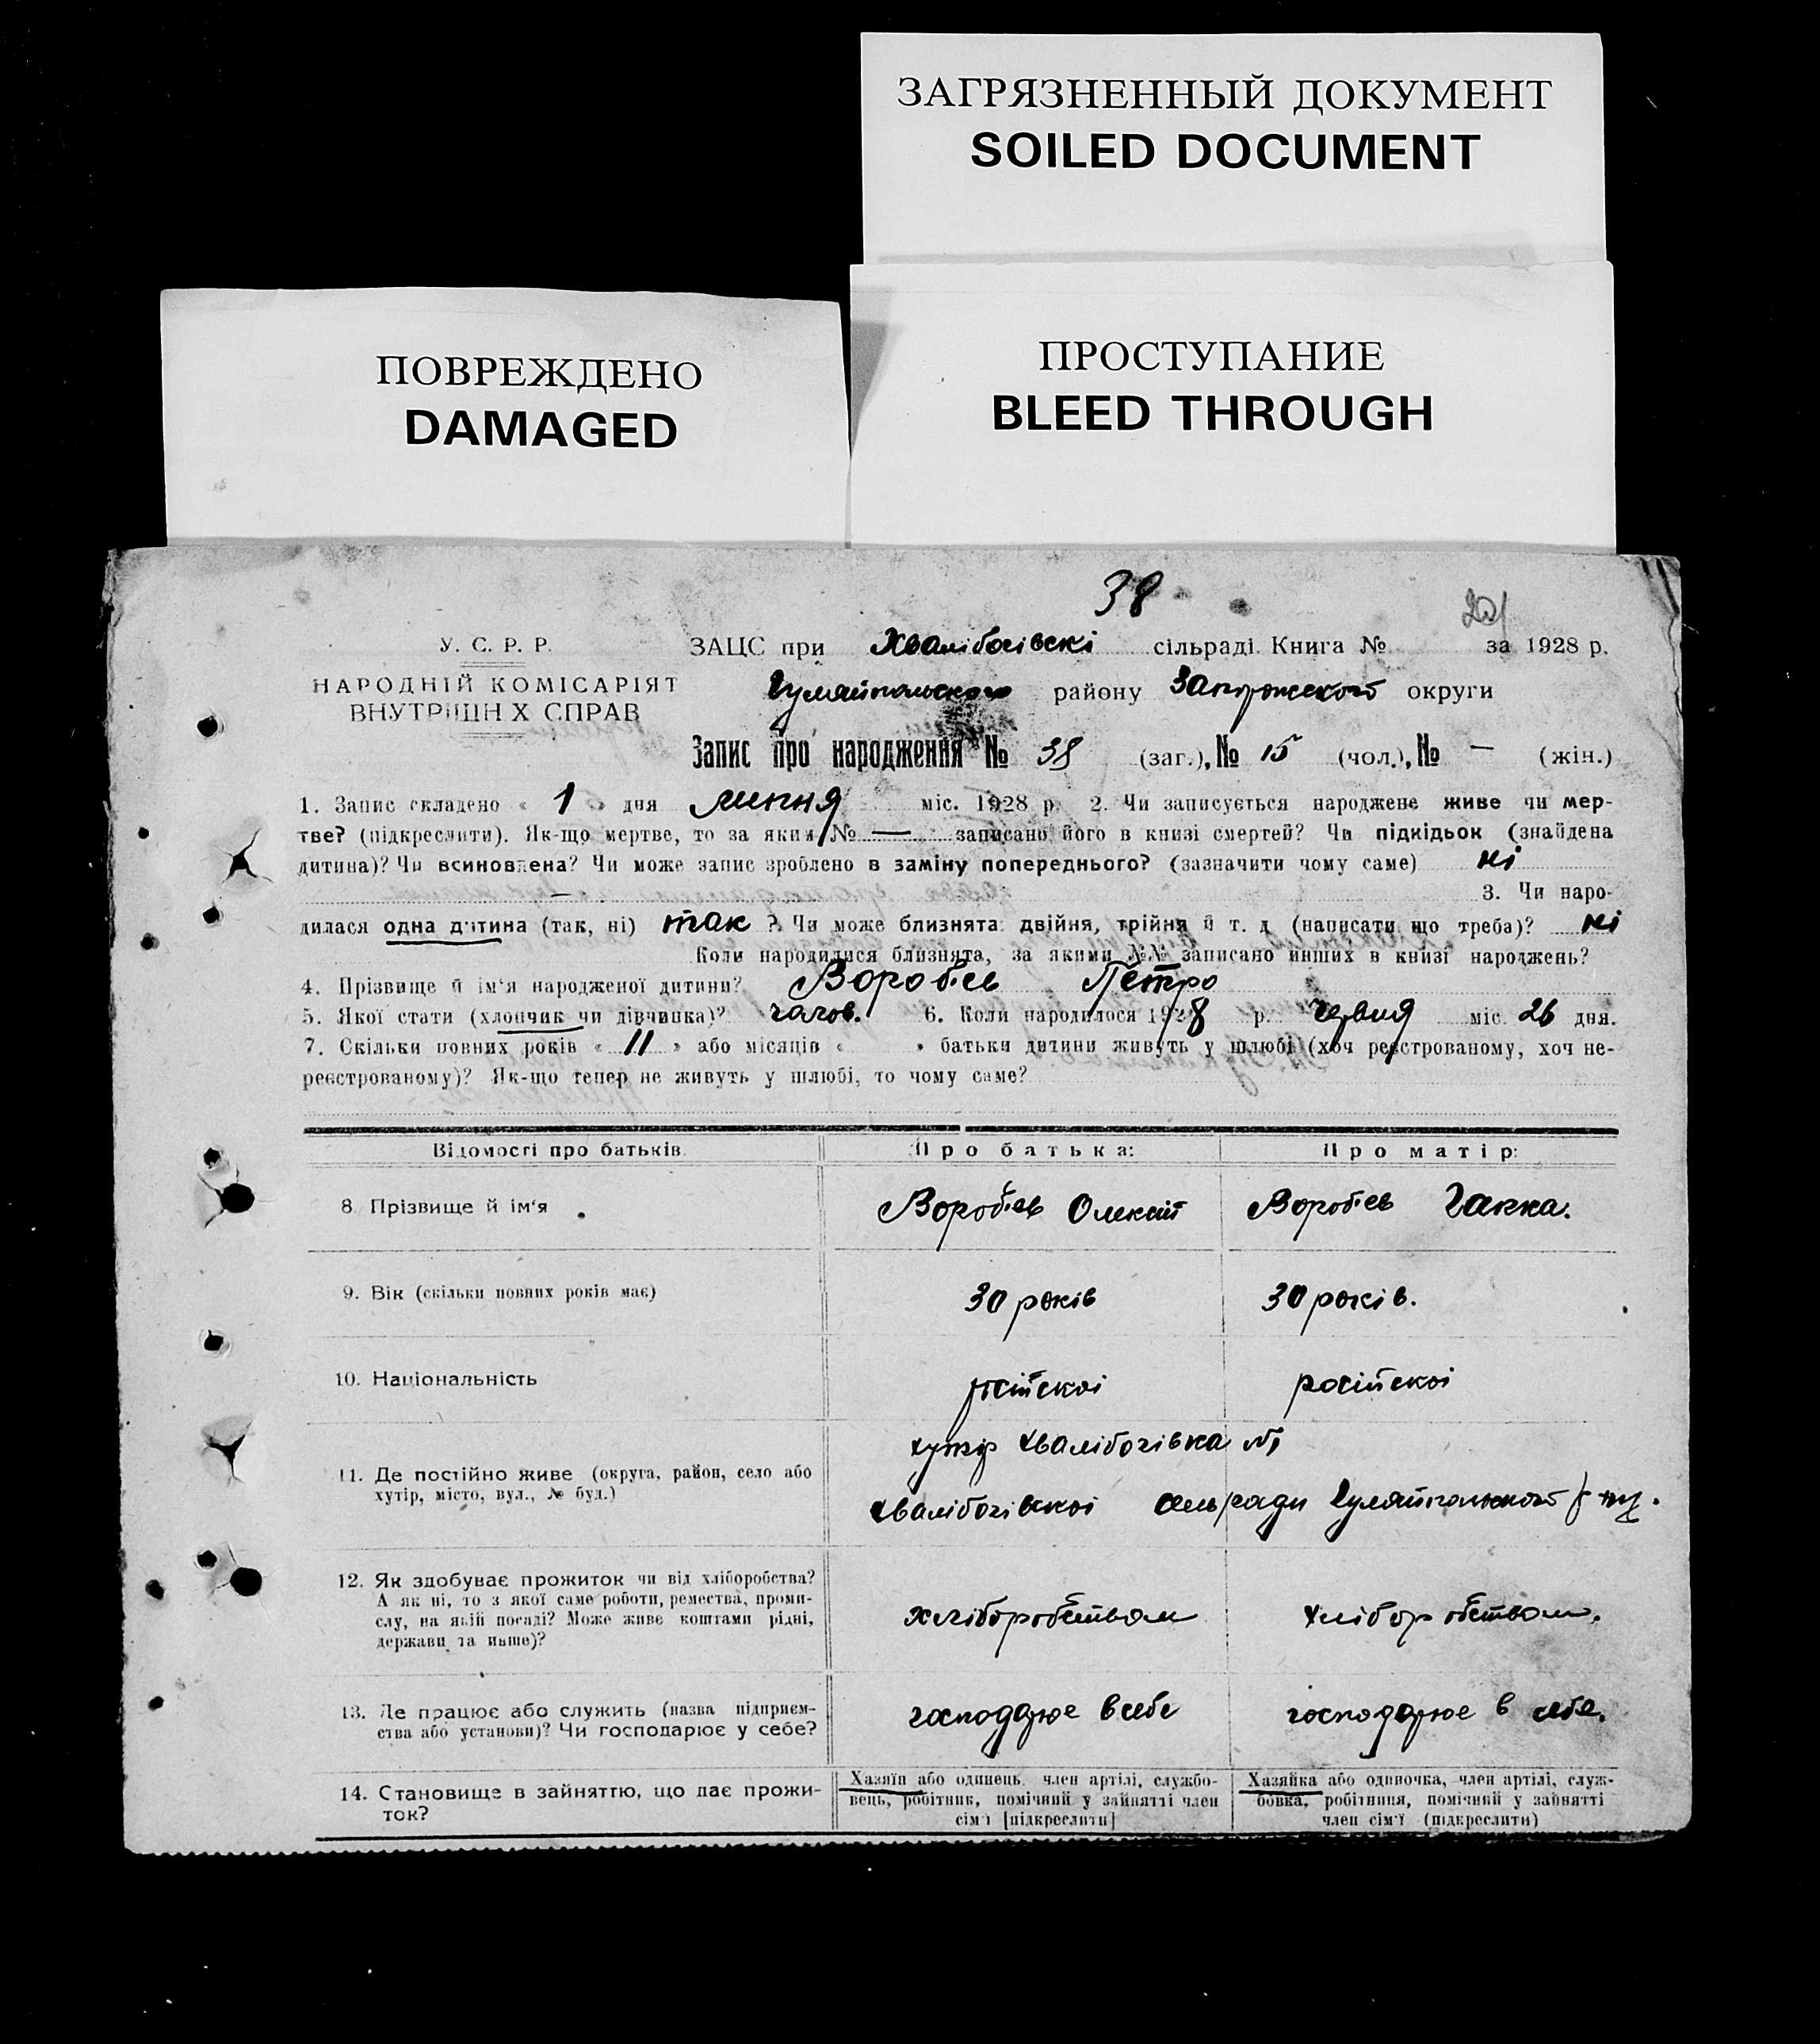 ЗАГРЯЗНЕННЫЙ ДОКУМЕНТ
SOILED DOCUMENT
ПОВРЕЖДЕНО
DAMAGED
ПРОСТУПАНИЕ
BLEED THROUGH
38
У. С. Р. Р.
НАРОДНІЙ КОМІСАРІЯТ
ВНУТРІШНІХ СПРАВ
ЗАЦС при Хвалібогівскі сільраді Книга № за 1928 р.
Гуляйпольского району Запоріжского округи
Запис про народження № 38 (заг.), № 15 (чол.), № — (жін.)
1. Запис складено « 1 » дня липня міс. 1928 р. 2. Чи записується народжене живе чи мер-
тве? (підкреслити). Як-що мертве, то за яким № — записано його в книзі смертей? Чи підкідьок (знайдена
дитина)? Чи всиновлена? Чи може запис зроблено в заміну попереднього? (зазначити чому саме) ні
— 3. Чи наро-
дилася одна дитина (так, ні) так ? Чи може близнята: двійня, трійня й т. д. (написати що треба)? ні
Коли народилися близнята, за якими №№ записано инших в книзі народжень?
4. Прізвище й ім'я народженої дитини? Воробʼєв Петро
5. Якої стати (хлопчик чи дівчинка)? чолов. 6. Коли народилося 1928 р. червня міс. 26 дня.
7. Скільки повних років « 11 » або місяців « » батьки дитини живуть у шлюбі (хоч реєстрованому, хоч не-
реєстрованому)? Як-що тепер не живуть у шлюбі, то чому саме?
Відомості про батьків. Про батька: Про матір:
8. Прізвище й ім'я Воробʼєв Олексій Воробʼєв Ганна.
9. Вік (скільки повних років має) 30 років 30 років.
10. Національність російскоі російскоі
хутір Хвалібогівка №1
11. Де постійно живе (округа, район, село або
хутір, місто, вул., № буд.)
Хвалібогівскоі сельради Гуляйпольского
12. Як здобуває прожиток чи від хліборобства?
А як ні, то з якої саме роботи, ремества, проми-
слу, на якій посаді? Може живе коштами рідні,
держави та инше)?
хліборобством хліборобством.
13. Де працює або служить (назва підприєм-
ства або установи)? Чи господарює у себе?
господарює в себе господарює в себе.
14. Становище в зайняттю, що дає прожи-
ток?
Хазяїн або одинець, член артілі, службо-
вець, робітник, помічний у зайнятті член
сім'ї [підкреслити]
Хазяйка або одиночка, член артілі, служ-
бовка, робітниця, помічний у зайнятті
член сім'ї (підкреслити)